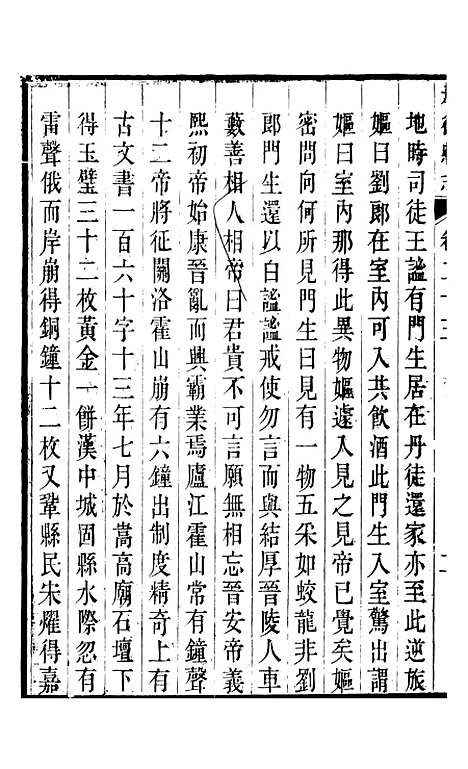 地時司徒王謐有門生居在丹徒還家亦至此逆旅
嫗曰劉郞在室內可入共飲酒此門生入室驚出謂
嫗曰室內那得此異物嫗遽入見之見帝已覺矣嫗
密問向何所見門生曰見有一物五采如蛟龍非劉
郞門生還以白謐謐戒使勿言而與結厚晉陵人車
藪善相人相帝曰君貴不可言願無相忘晉安帝義
熙初帝始康晉亂而興霸業焉廬江霍山常有鐘聲
十二帝將征關洛霍山崩有六鐘出制度精奇上有
古文書一百六十字十三年七月於嵩高廟石壇下
得玉璧三十二枚黃金一餅漢中城固縣水際忽有
雷聲俄而岸崩得銅鐘十二枚又鞏縣民宋燿得嘉